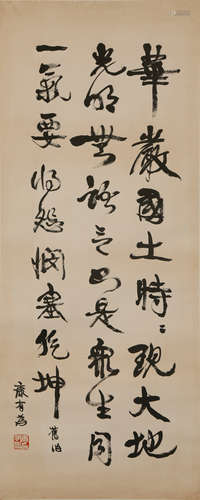 華嚴國土時〻現大地
光明無語言只是眾生同
一氣要將悲憫塞乾坤 舊作
康有為